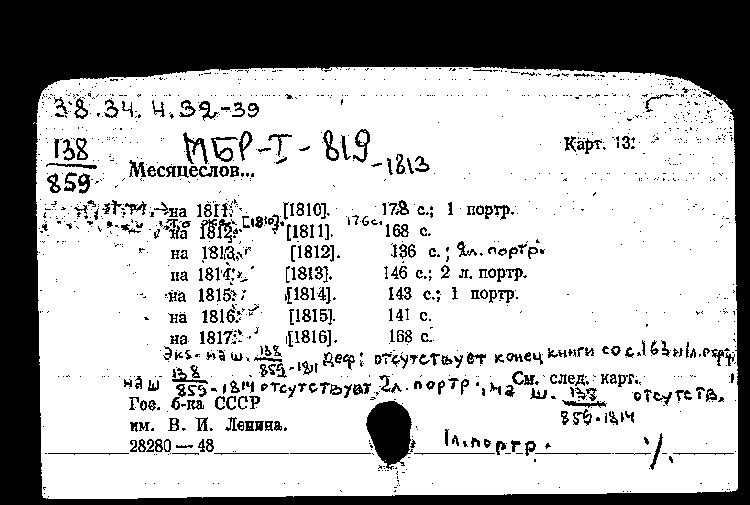 38.34.4.32-39
138
859
МБР-I-819
-1813
Карт. 13
Месяцеслов...
на 1811. [1810]. 178 с.; 1 портр.
То же [1810]. 176 с.
на 1812. [1811]. 168 с.
на 1813. [1812]. 136 с.; 2 л. портр.
на 1814. [1813]. 146 с.; 2 л. портр.
на 1815. [1814]. 143 с.; 1 портр.
на 1816. [1815]. 141 с.
на 1817. [1816]. 168 с.
Экз. на ш. 138 / 859-1811 Деф: отсутствует конец книги со с. 163 и 1 л. портр
на ш 138 / 859-1814 отсутствует 2 л. портр., на ш. 138 / 859-1814 отсутств.
См. след. карт.
1 л. портр.
Гос. б-ка СССР
им. В. И. Ленина.
28280 — 48